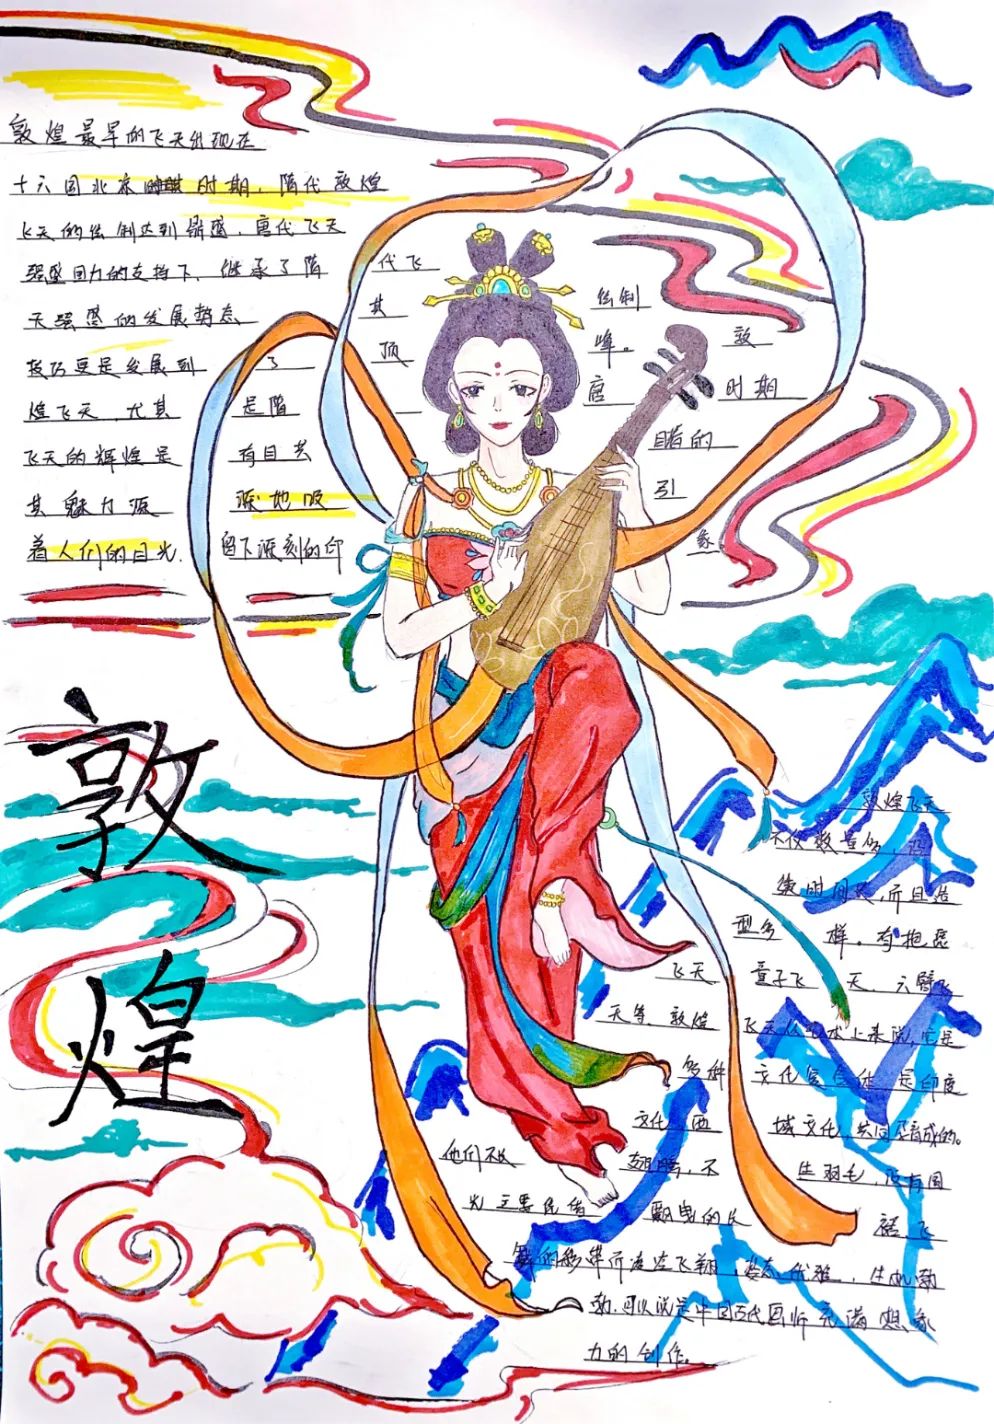 敦煌最早的飞天出现在
十六国北凉时期，隋代敦煌
飞天的绘制达到鼎盛，唐代飞天
强盛国力的支持下，继承了隋代飞
天强盛的发展势态 其绘制
技巧更是发展到了顶峰。敦
煌飞天，尤其是隋一唐时期
飞天的辉煌是有目共睹的
其魅力源源地吸引
着人们的目光，留下深刻的印象
敦煌
敦煌飞天
不仅数量多，
续时间长，而且造
型多样。有抱琵
飞天 童子飞天、六臂飞
天等、敦煌飞天从艺术上来说，它是
多种文化 是印度
文化 西域文化，共同孕育成的。
他们不 翅膀，不生羽毛，没有圆
光 主要凭借飘曳的 裙、飞
舞的彩带而凌空飞翔 姿态优雅，
可以说是中国古代画师充满想象
力的创作。